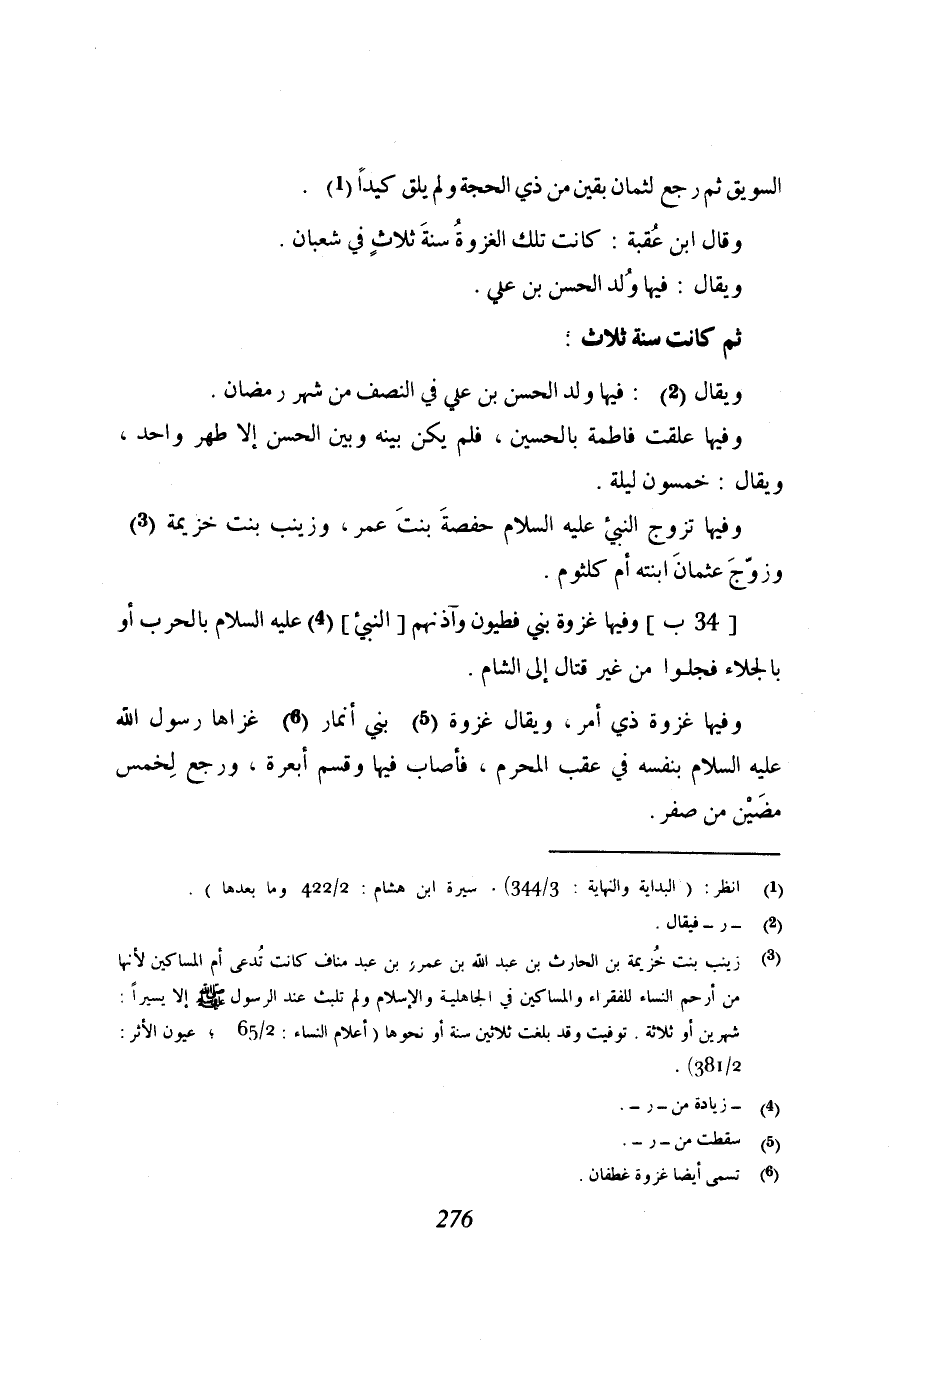 السويق ثم رجع لثمان بقين من ذي الحجة ولم يلق كيداً (1) .
وقال ابن عُقبة : كانت تلك الغزوةُ سنةَ ثلاثٍ في شعبان .
ويقال : فيها وُلد الحسن بن علي .
ثم كانت سنة ثلاث :
ويقال (2) : فيها ولد الحسن بن علي في النصف من شهر رمضان .
وفيها علقت فاطمة بالحسين ، فلم يكن بينه وبين الحسن إلا طهر واحد ،
ويقال : خمسون ليلة .
وفيها تزوج النبيُّ عليه السلام حفصةَ بنتَ عمر ، وزينب بنت خزيمة (3)
وزوّجَ عثمانَ ابنته أم كلثوم .
[ 34 ب ] وفيها غزوة بني فطيون وآذنهم [ النبيُّ ] (4) عليه السلام بالحرب أو
بالجلاء فجلوا من غير قتال إلى الشام .
وفيها غزوة ذي أمر ، ويقال غزوة (5) بني أنمار (6) غزاها رسول الله
عليه السلام بنفسه في عقب المحرم ، فأصاب فيها وقسم أبعرة ، ورجع لِخمس
مضَيْن من صفر .
(1) انظر : ( البداية والنهاية : 344/3) . سيرة ابن هشام : 422/2 وما بعدها ) .
(2) – ر – فيقال .
(3) زينب بنت خُزيمة بن الحارث بن عبد الله بن عمرو بن عبد مناف كانت تُدعى أم المساكين لأنها
من أرحم النساء للفقراء والمساكين في الجاهلية والإسلام ولم تلبث عند الرسول ﷺ إلا يسيراً :
شهرين أو ثلاثة . توفيت وقد بلغت ثلاثين سنة أو نحوها ( أعلام النساء : 65/2 ؛ عيون الأثر :
381/2) .
(4) – زيادة من – ر – .
(5) سقطت من – ر – .
(6) تسمى أيضا غزوة غطفان .
276